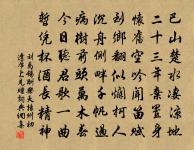 巴山楚水凄涼地
二十三年棄置身
懷舊空吟聞笛賦
到鄉翻似爛柯人
沉舟側畔千帆過
病樹前頭萬木春
今日聽君歌一曲
暫憑杯酒長精神
劉禹錫酬樂天揚州初
逢席上見贈